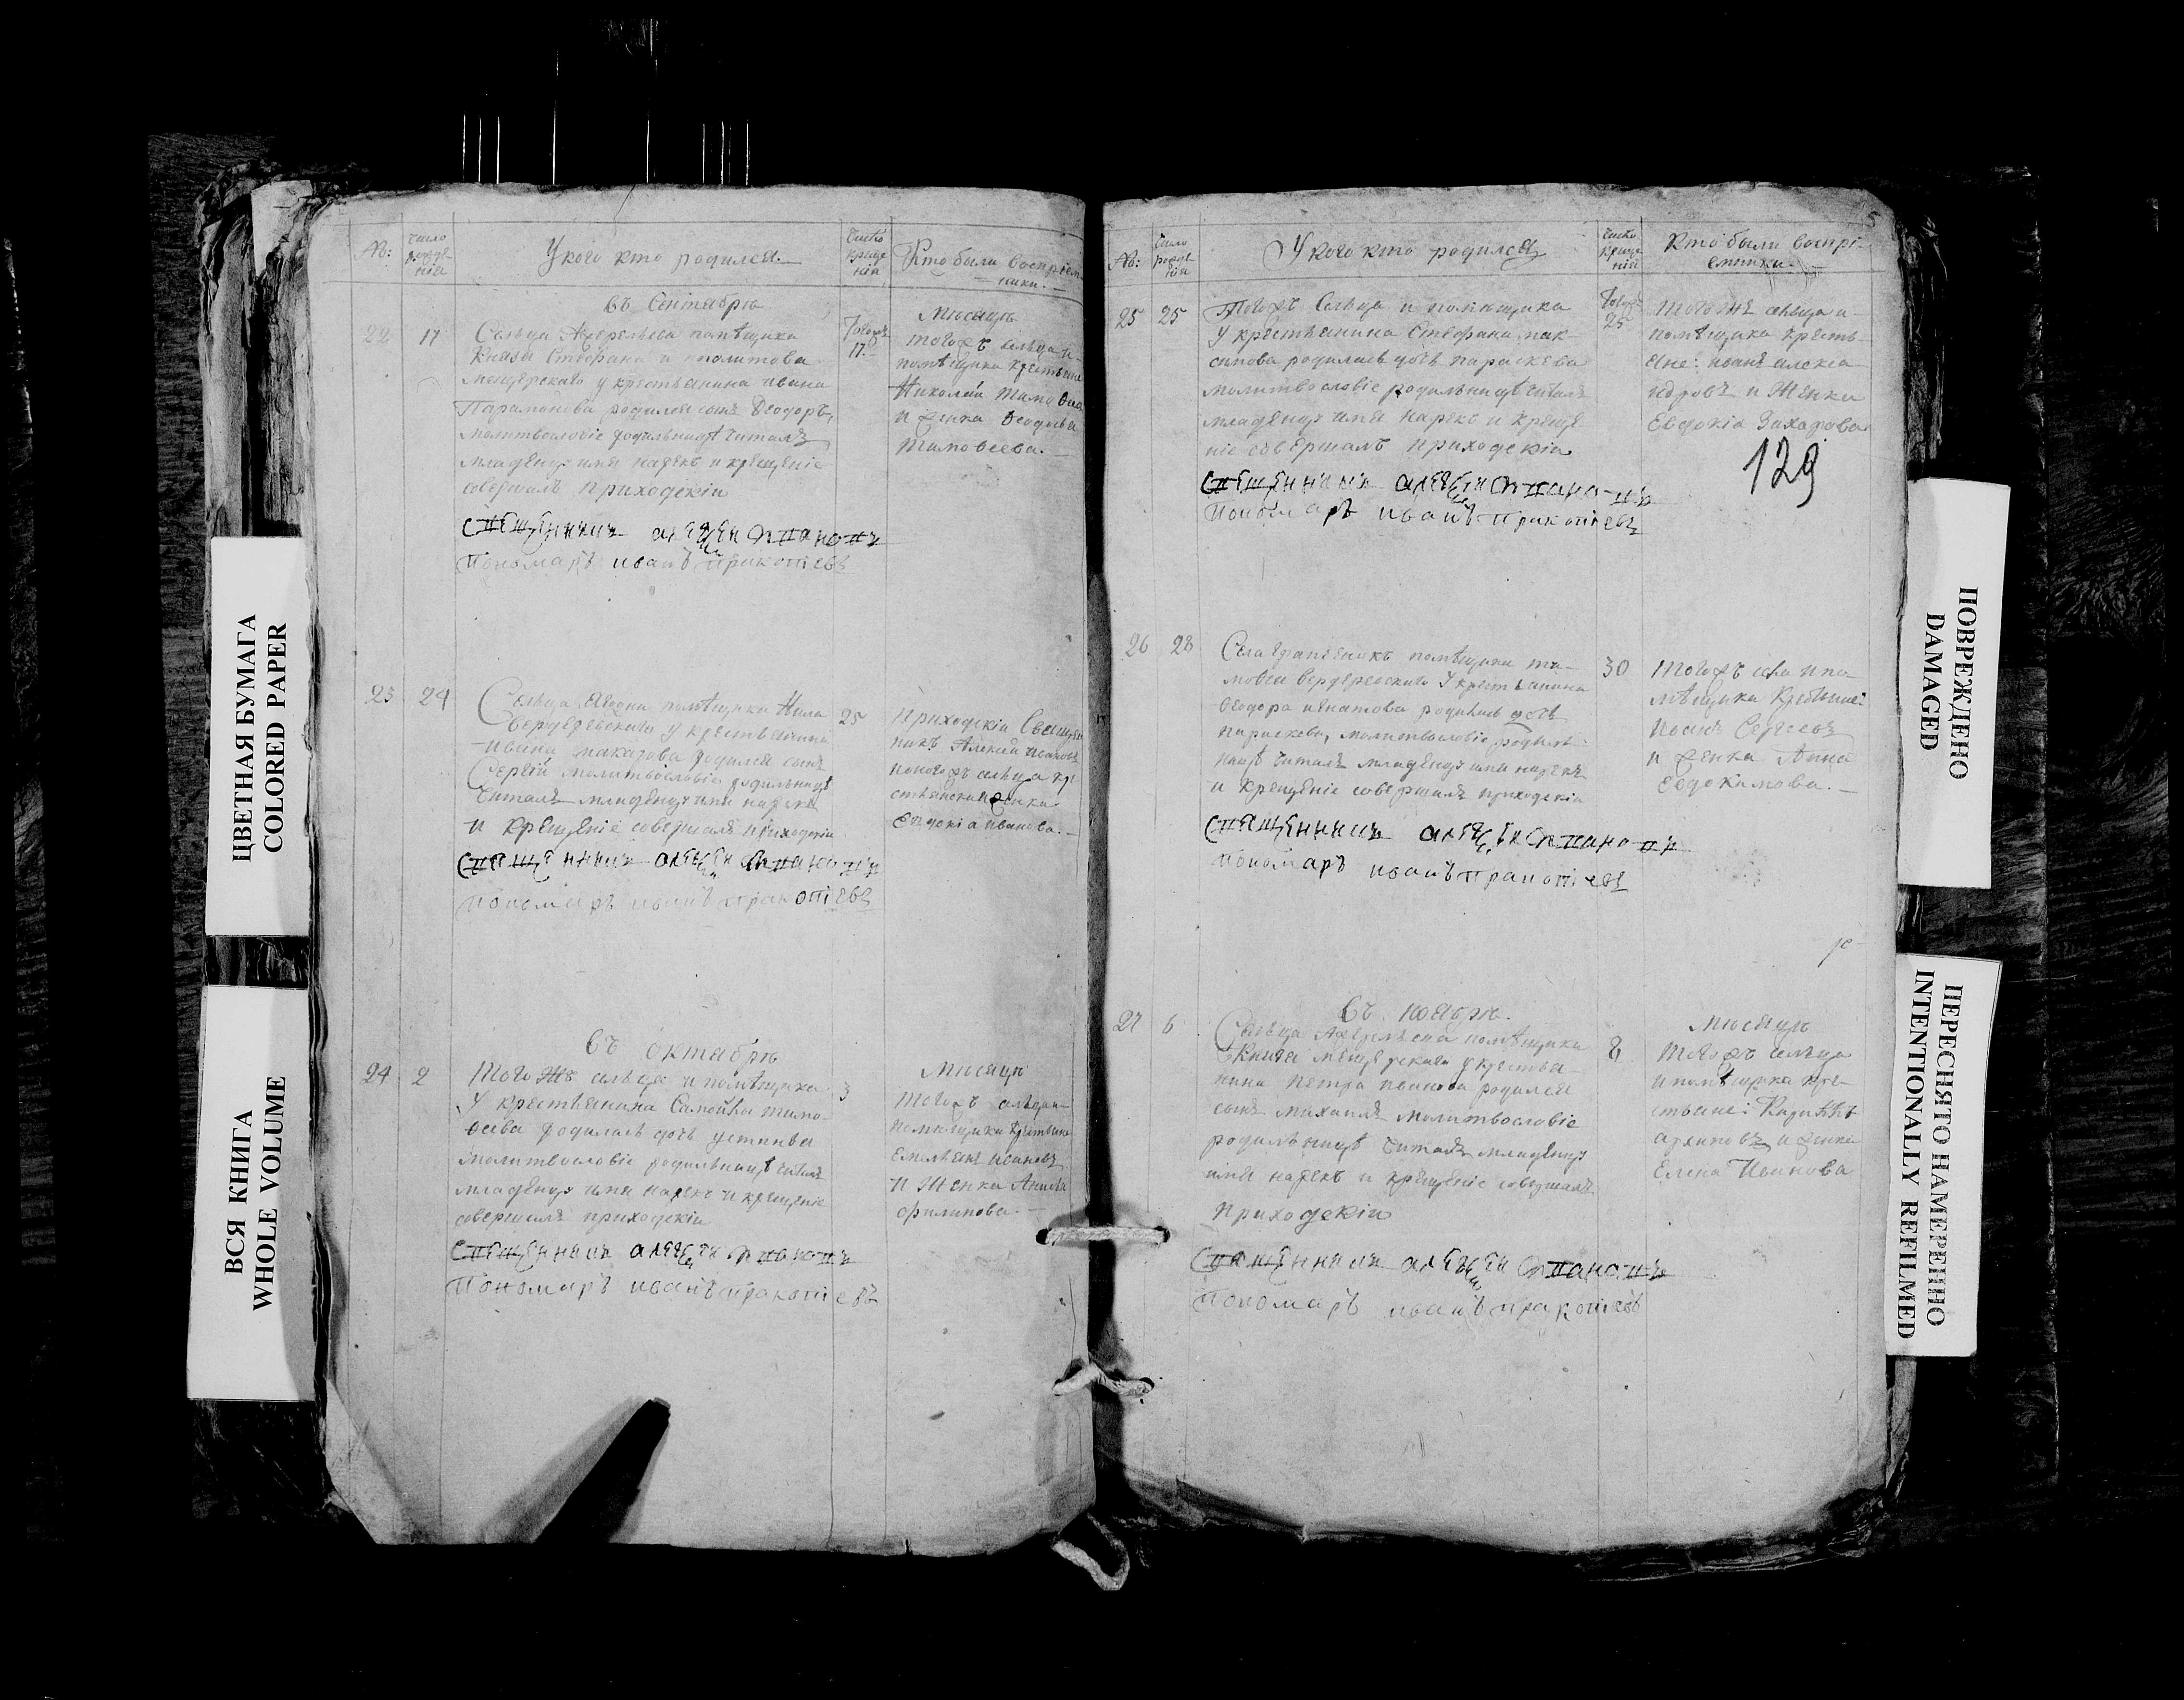 №:
Число рожде нія
У кого кто родился.
Число креще нія
Кто были воспріем-
ники.
въ Сентябрѣ
Мѣсяцѣ
22
17
Сельца помѣщика
Князя Стефана
мещерскаго у крестьянина ивана
Парамонова родился сынъ Ѳеодоръ,
молитвословіе родильницѣ читалъ
младенцу имя нарекъ и крещеніе
совершалъ приходскій
Священникъ алеѯей
Пономарь иванъ пракопіевъ
17.
тогожъ сельца и
помѣщика крестьяне
Николай
и женка
Тимоѳеева.
23
24
Сельца помѣщика Нила
вердеревскаго у крестьянина
ивана макарова родился сынъ
Сергій молитвословіе родильницѣ
читалъ младенцу имя нарекъ
и крещеніе совершалъ приходскій
Священникъ алеѯей
Пономарь иванъ пракопіевъ
25
приходскій Священ
никъ Алексѣй
сельца кре
женка
иванова.
въ октябрѣ
Мѣсяцѣ
24
2
Того жъ сельца и помѣщика
У крестьянина Самойлы тимо-
ѳеева родилась дочь устинья
молитвословіе родильницѣ читалъ
младенцу имя нарекъ и крещеніе
совершалъ приходскій
Священникъ алеѯей
Пономарь иванъ пракопіевъ
3
тогожъ сельца и
помѣщика крестьяне
емельянъ ивановъ
и Женка
филипова.
5
№:
Число рожде нія
У кого кто родился
Число креще нія
Кто были воспрі-
емники.
25
25
Тогожъ Сельца и помѣщика
у крестьянина Стефана мак-
симова родилась дочь параскева
молитвословіе родильницѣ читалъ
младенцу имя нарекъ и креще
ніе совершалъ приходскій
Священникъ алеѯей
Пономарь иванъ пракопіевъ
25
того же сельца и
помѣщика кресть-
яне: иванъ алекса
ндровъ и Женка
Евдокія Захарова
129
26
28
Села помѣщика ти-
моѳея вердеревскаго у крестьянина
ѳеодора игнатова родилась дочь
параскева, молитвословіе родиль
ницѣ читалъ младенцу имя нарекъ
и крещеніе совершалъ приходскій
Священникъ алеѯей
Пономарь иванъ пракопіевъ
30
тогожъ села и по
мѣщика крестьяне:
иванъ Сергеевъ
и женка Анна
Евдокимова.
въ ноябрѣ.
Мѣсяцѣ
27
6
Сельца помѣщика
Князя мещерскаго у крестья-
нина петра иванова родился
сынъ михаилъ молитвословіе
родильницѣ читалъ младенцу
имя нарекъ и крещеніе совершалъ
приходскій
Священникъ алеѯей
Пономарь иванъ пракопіевъ
8
тогожъ сельца
и помѣщика кре-
стьяне:
архиповъ и женка
Елена Иванова
ЦВЕТНАЯ БУМАГА
COLORED PAPER
ВСЯ КНИГА
WHOLE VOLUME
ПОВРЕЖДЕНО
DAMAGED
ПЕРЕСНЯТО НАМЕРЕННО
INTENTIONALLY REFILMED